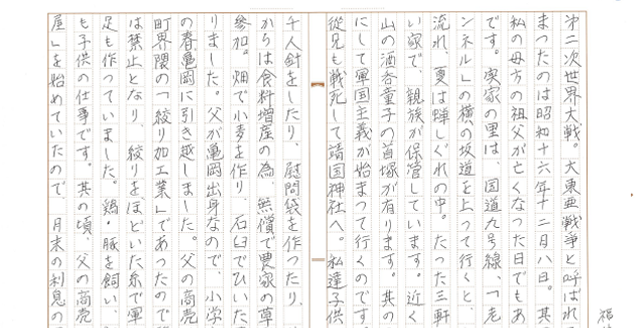 第二次世界大戦。大東亜戦争と呼ばれ
まったのは昭和十六年十二月八日。其
私の母方の祖父が亡くなった日でもあ
です。実家の里は、国道九号線、「老
ンネル」の横の坂道を上って行くと、
流れ、夏は蝉しぐれの中。たった三軒
い家で、親族が保管しています。近く
山の酒呑童子の首塚が有ります。其の
にして軍国主義が始まって行くのです
従兄も戦死して靖国神社へ。私達子供
千人針をしたり、慰問袋を作ったり、
からは食料増産の為、無償で農家の草
参加。畑で小麦を作り、石臼でひいた
りました。父が亀岡出身なので、小学
の春亀岡に引き越しました。父の商売
町界隈の「絞り加工業」であったので
は禁止となり、絞りをほどいた糸で軍
足も作っていました。鶏・豚を飼い、
も子供の仕事です。其の頃、父の商売
屋」を始めていたので、月末の利息の